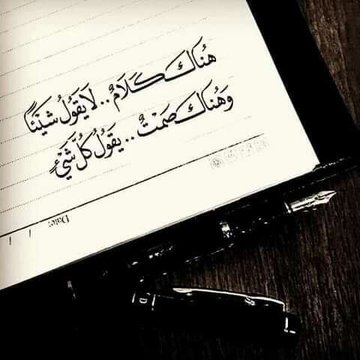 هُنَاكَ كَلَامٌ.. لَا يَقُولُ شَيْئاً
وَهُنَاكَ صَمْتٌ.. يَقُولُ كُلَّ شَيْءٍ
Date:
/ /